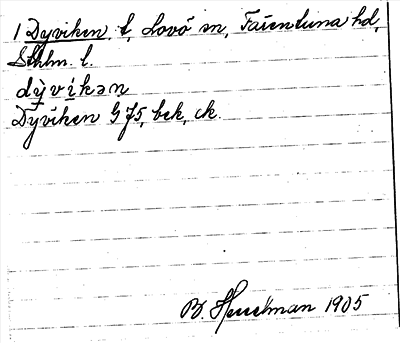 1 Dyviken t, Lovö sn, Färentuna hd,
Sthlm. l.
dỳvikən
Dyviken G 75, bek, ck.
B. Hesselman 1905